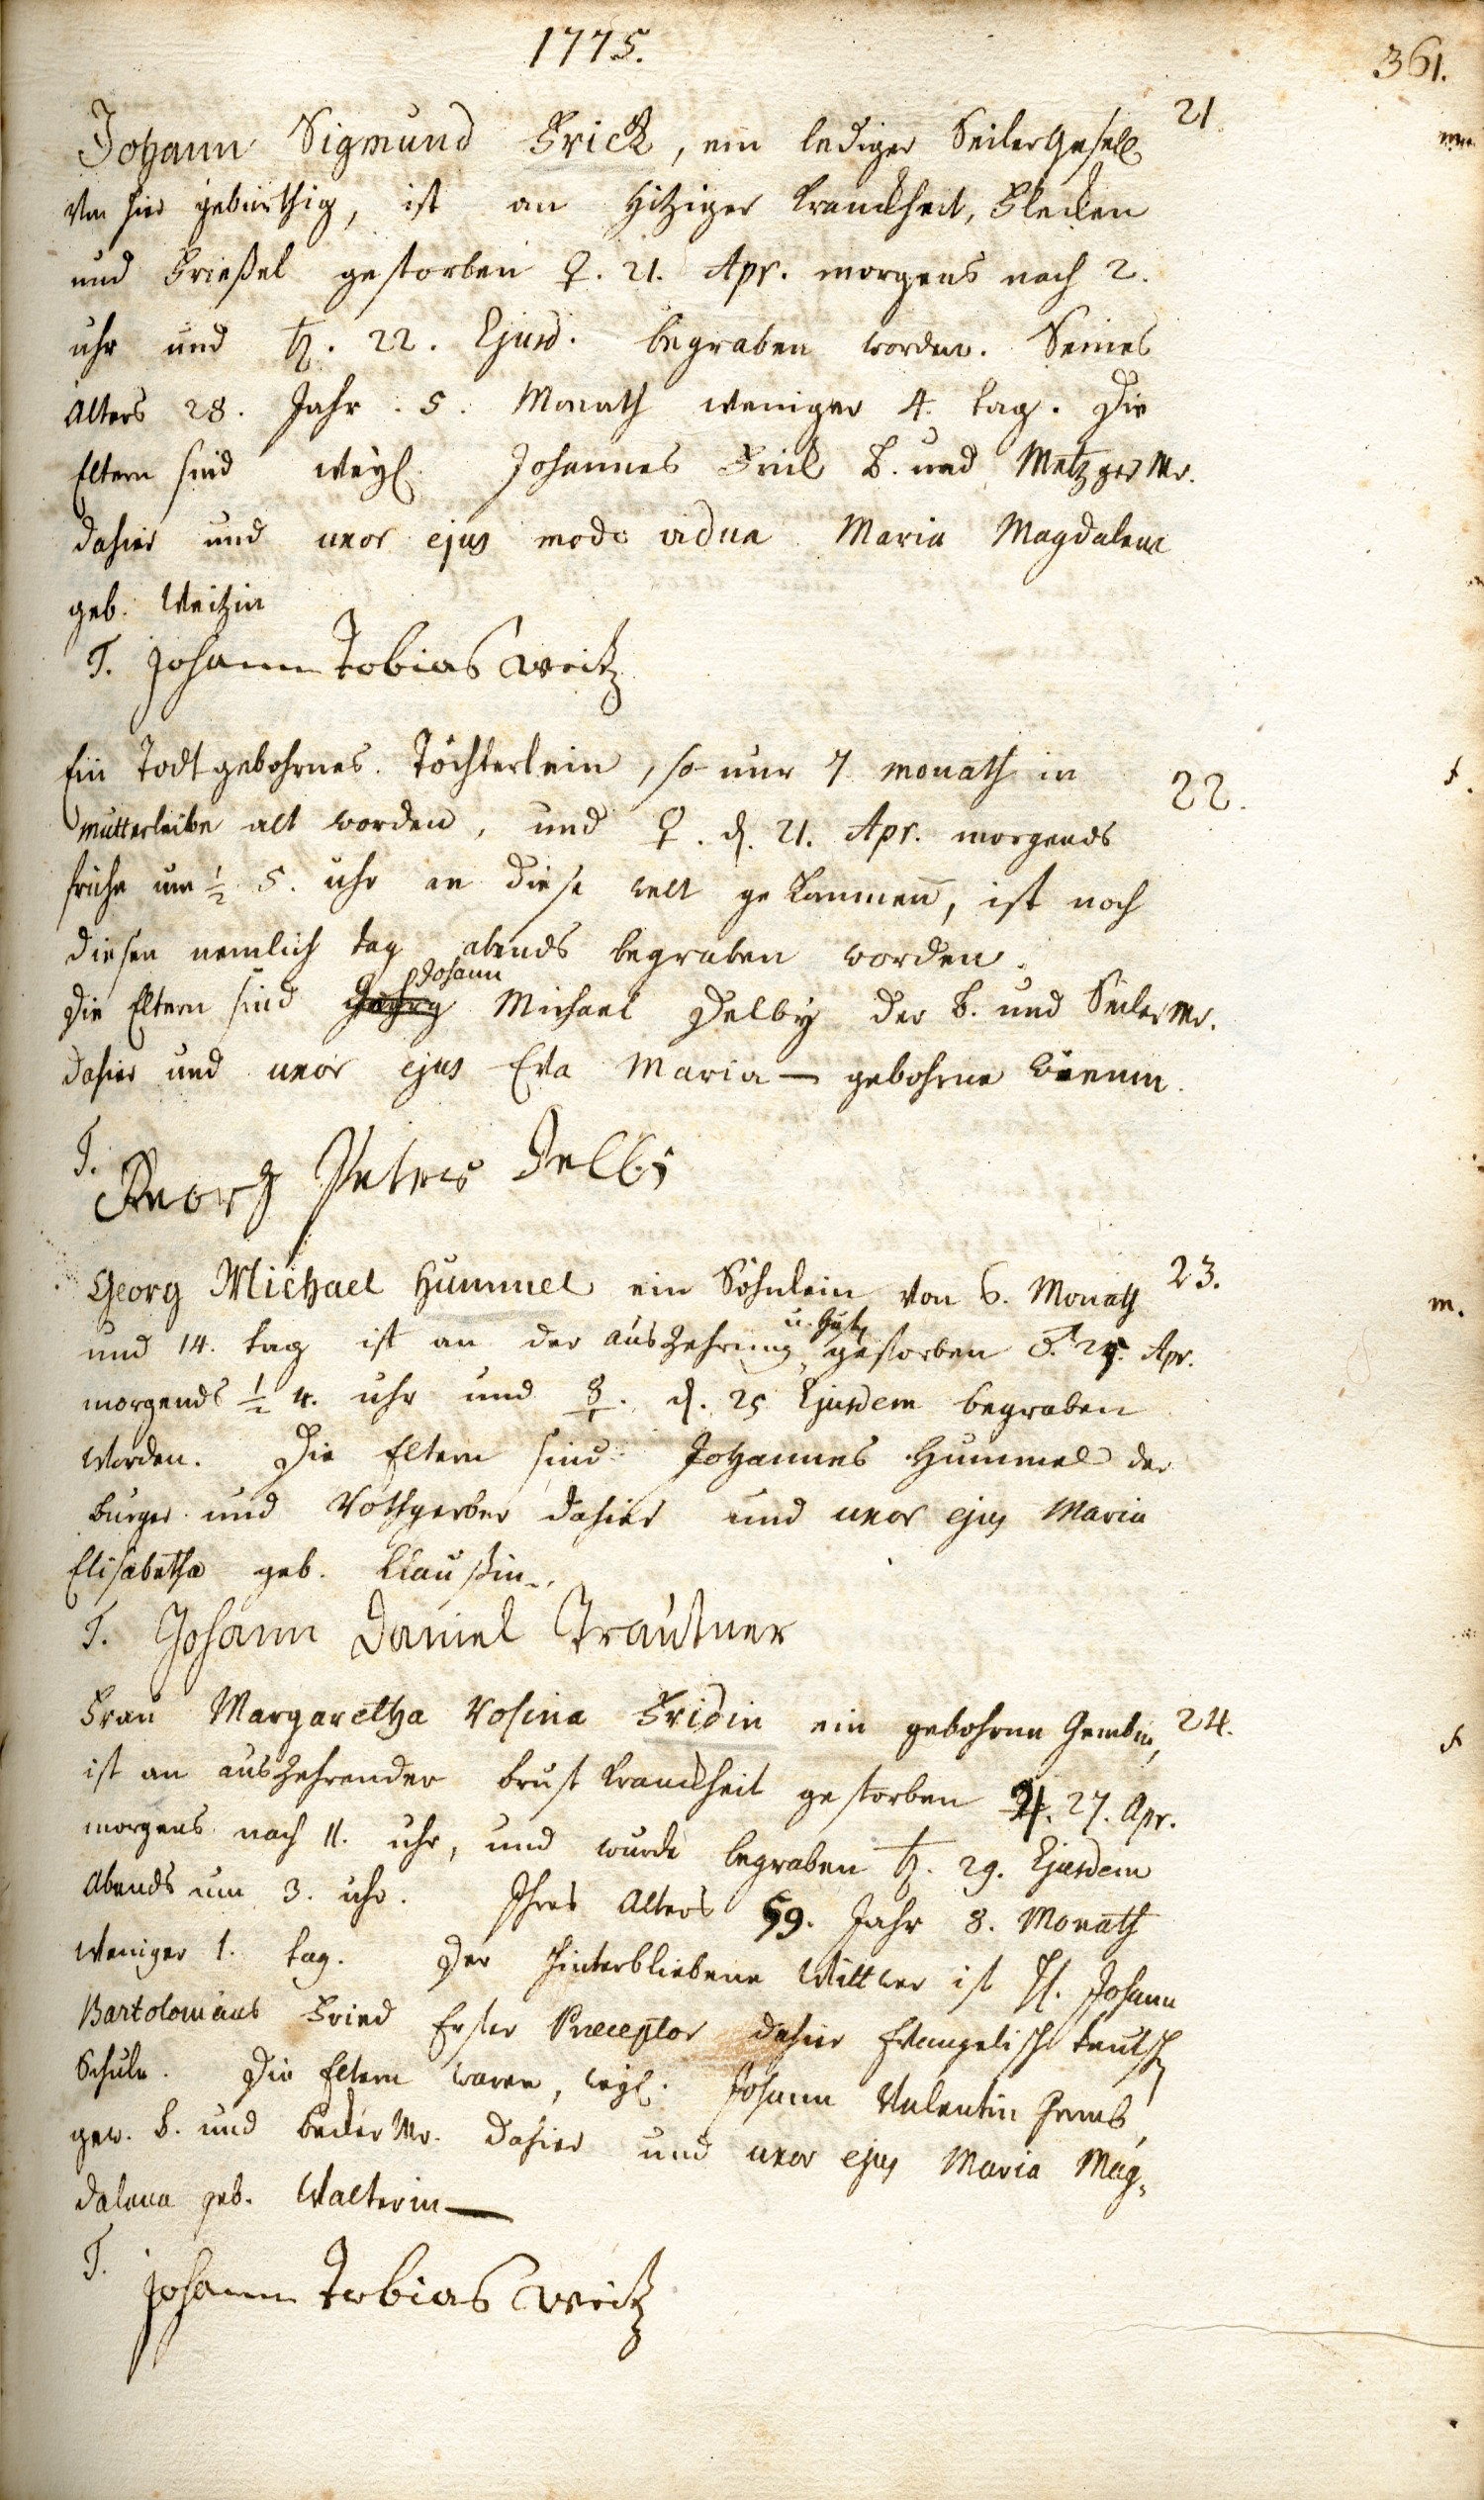 1775.
361.
21.
Johann Sigmund Frick, ein lediger Seiler Gesell
Von hier gebürthig, ist an Hitziger Kranckheit, Flecken
und Frießel gestorben ♀. 21. Apr. morgens nach 2.
uhr und ♄. 22. Ejusd. begraben worden. Seines
Alters 28. Jahr. 5. Monath weniger 4. tag. Die
Eltern sind weyl. Johannes Frick B. und Metzger Mr.
dahier und uxor ejus modo vidua Maria Magdalena
geb. Weitzin
T. Johann Tobias Weitz
22.
Ein Todtgebohrnes Töchterlein, so nur 7 monath in
Mutterleibe alt worden, und ♀. d. 21. Apr. morgends
frühe um ½ 5. uhr an diese welt gekommen, ist noch
diesen nemlich tag abends begraben worden.
Johann
Die Eltern sind Georg Michael Delby der B. und Seiler Mr.
dahier und uxor ejus Eva Maria — gebohrne
T.
Georg Peter Delbi
23.
Georg Michael Hummel ein Söhnlein von 6. Monath
und 14. tag ist an der auszehrung gestorben ♂. 25. Apr.
morgends ½ 4. uhr und d. 25 Ejusdem begraben
worden. Die Eltern sind Johannes Hummel der
Burger und Rothgerber dahier und uxor ejus Maria
Elisabetha geb. Klaußin.
T. Johann Daniel Trautner
24.
Frau Margaretha Rosina Fridin ein gebohrne Grembin,
ist an auszehrender brust Kranckheit gestorben ♃. 27. Apr.
morgens nach 11. uhr, und wurde begraben ♄. 29. Ejusdem
Abends um 3. uhr. Ihres Alters 59. Jahr 8. Monath
weniger 1. tag. Der hinterbliebene Wittwer ist H. Johann
Bartolomäus Fried Erster Præceptor dahier Evangelisch teutsch
Schule. Die Eltern waren, weyl. Johann Valentin Gremb,
gew. B. und Becker Mr. dahier und uxor ejus Maria Mag,
dalena geb. Walterin —
T.
Johann Tobias Weitz